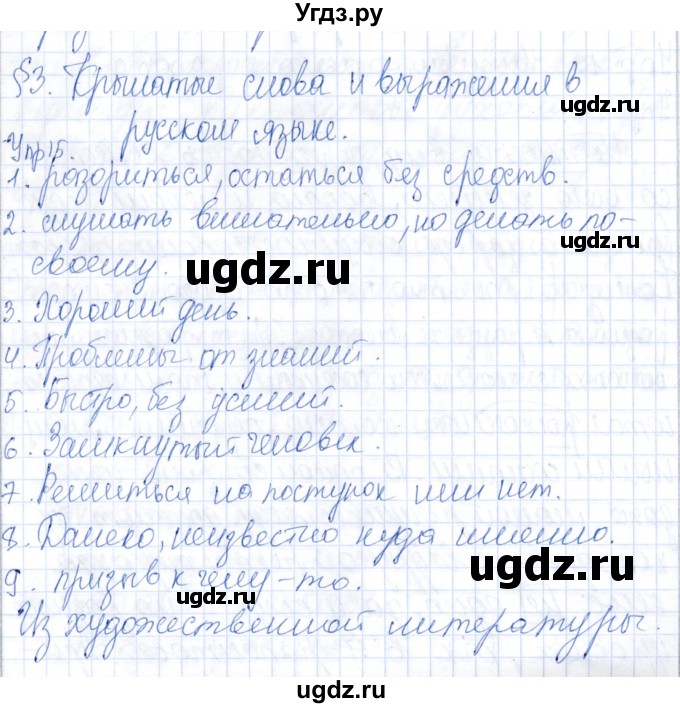 Угдз.ру
§3. Крылатые слова и выражения в
ugdz.ru
русском языке.
Упр 15.
1. разориться, остаться без средств.
2. слушать внимательно, но делать по-
ugdz.ru
своему.
ugdz.ru
3. Хороший день.
ugdz.ru
4. Проблемы от знаний.
5. Быстро, без усилий.
ugdz.ru
6. Замкнутый человек.
7. Решиться на поступок или нет.
8. Далеко, неизвестно куда именно.
ugdz.ru
9. призыв к чему-то.
ugdz.ru
Из художественной литературы.
ugdz.ru